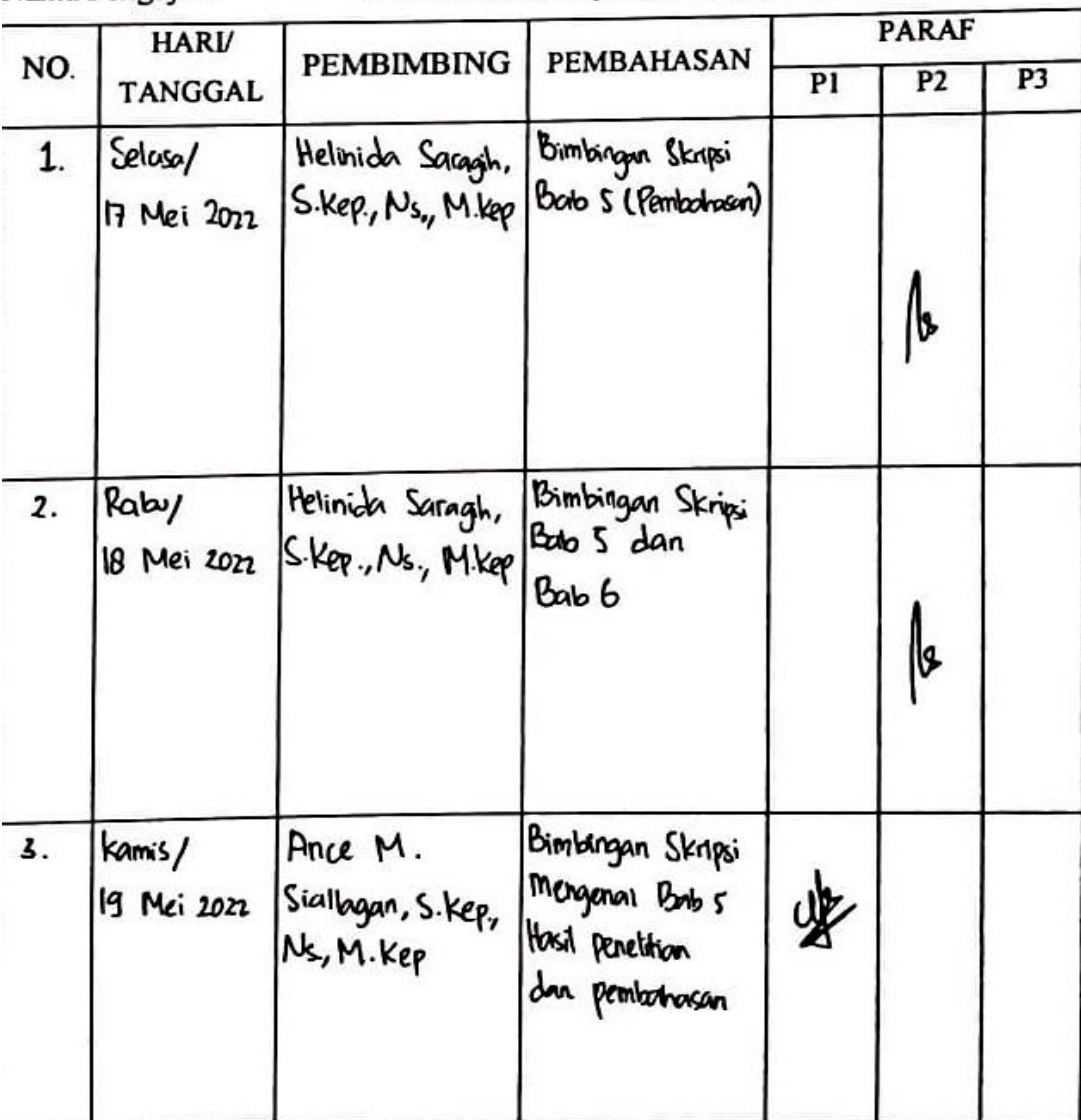 NO.
HARI/
TANGGAL
PEMBIMBING
PEMBAHASAN
PARAF
P1
P2
P3
1.
Selasa/
17 Mei 2022
Helinida Saragih,
S.Kep., Ns., M.Kep
Bimbingan Skripsi
Bab 5 (Pembahasan)
2.
Rabu/
18 Mei 2022
Helinida Saragh,
S.Kep., Ns., M.Kep
Bimbingan Skripsi
Bab 5 dan
Bab 6
3.
Kamis/
19 Mei 2022
Ance M.
Siallagan, S.Kep.,
Ns., M.Kep
Bimbingan Skripsi
Mengenai Bab 5
Hasil penelitian
dan pembahasan